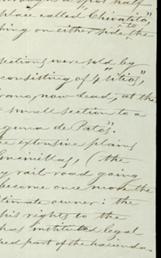 half
place called "Chivatito",
thing on either side, the
sections were sold by
consisting of "4 sitios",
now dead, at the
small section to a
Laguna de Patos".
extensive plains
Encinillas, (the
rail-road going
become once more the
timate owner: the
his rights to the
has instituted legal
red part of the hacienda.